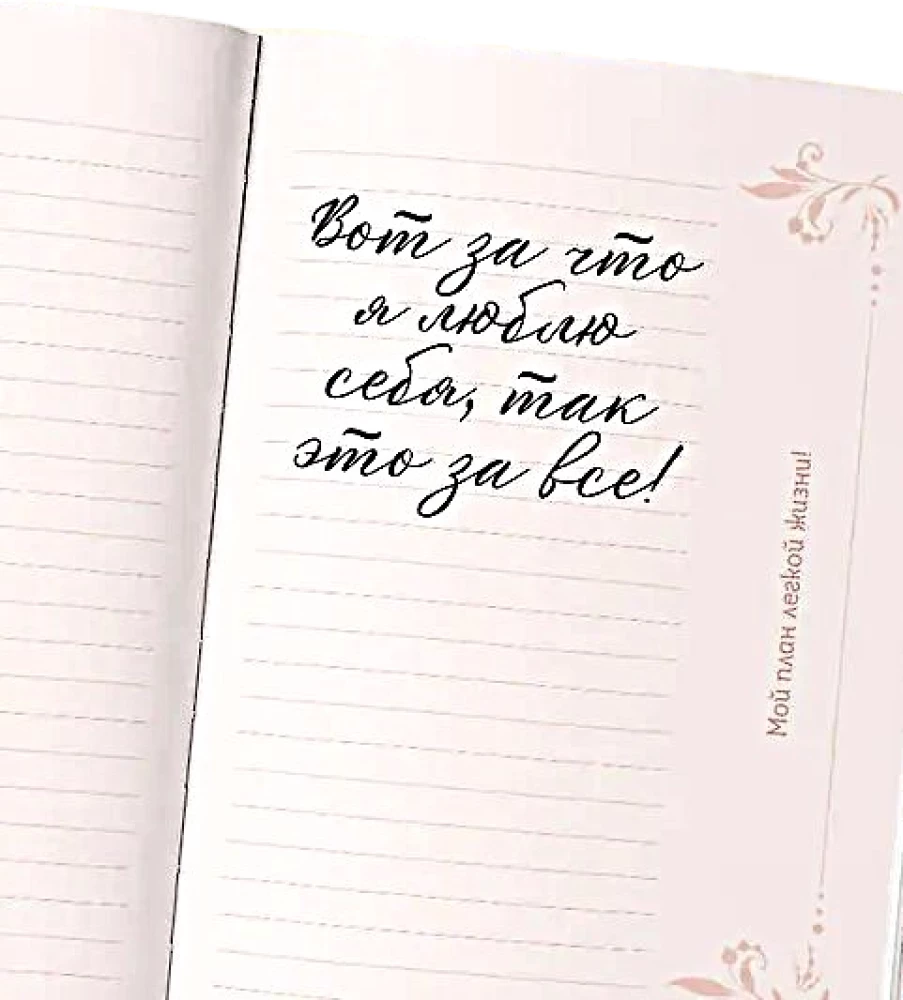 Вот за что
я люблю
себя, так
это за все!
Мой план легкой жизни!